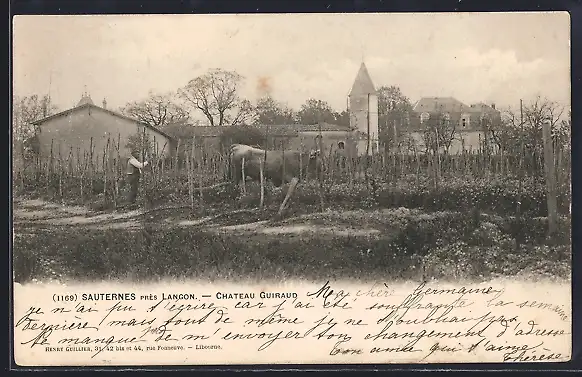 (1169) SAUTERNES PRÈS LANGON. — CHATEAU GUIRAUD
Ma chère Germaine
je n'ai pu t'écrire car j'ai été souffrante la semaine
dernière mais tout de même je ne voudrais pas
te manque de m'envoyer ton changement d'adresse
Ton amie qui t'aime
Thérèse
HENRY GUILLIER, 31, 42 bis et 44, rue Fonneuve. — Libourne.